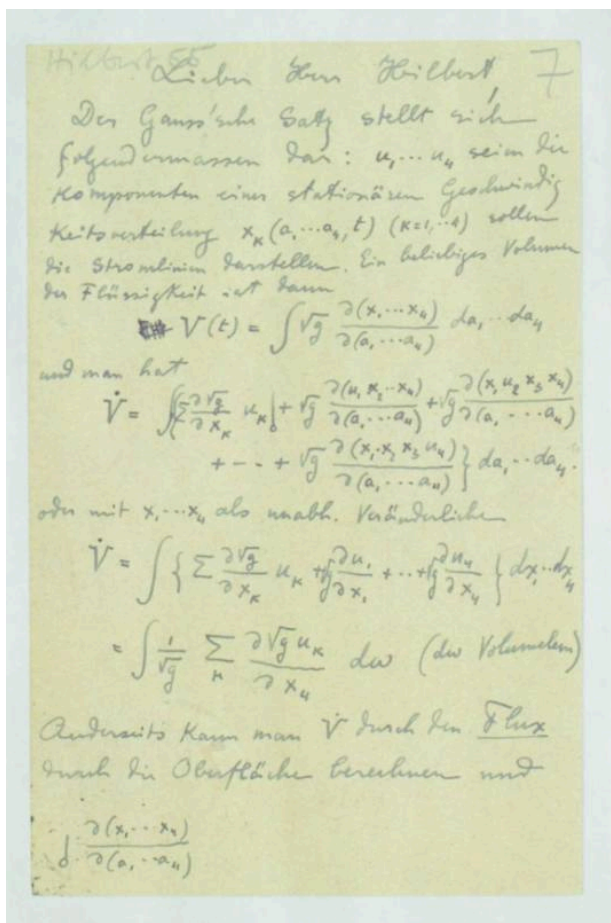 Hilbert 55
7
Lieber Herr Hilbert,
Der Gauss'sche Satz stellt sich
folgendermassen dar: u₁ ... u₄ seien die
Komponenten einer stationären Geschwindig
keitsverteilung x_κ (a₁ ... a₄, t) (κ=1, ..4) sollen
die Stromlinien darstellen. Ein beliebiges Volumen
der Flüssigkeit ist dann
V(t) = ∫ √g ∂(x₁ ... x₄)/∂(a₁ ... a₄) da₁ .. da₄
und man hat
V̇ = ∫{Σ ∂√g/∂x_κ u_κ + √g ∂(u₁ x₂ .. x₄)/∂(a₁ ... a₄) + √g ∂(x₁ u₂ x₃ x₄)/∂(a₁ ... a₄)
+ -- + √g ∂(x₁ x₂ x₃ u₄)/∂(a₁ ... a₄)} da₁ .. da₄.
oder mit x₁ ... x₄ als unabh. Veränderlichen
V̇ = ∫ { Σ ∂√g/∂x_κ u_κ + √g ∂u₁/∂x₁ + ... + √g ∂u₄/∂x₄ } dx₁ .. dx₄
= ∫ 1/√g Σ_κ ∂√g u_κ/∂x_κ dω (dω Volumelem)
Anderseits kann man V̇ durch den Flux
durch die Oberfläche berechnen und
∂(x₁ ... x₄)/∂(a₁ .. a₄)